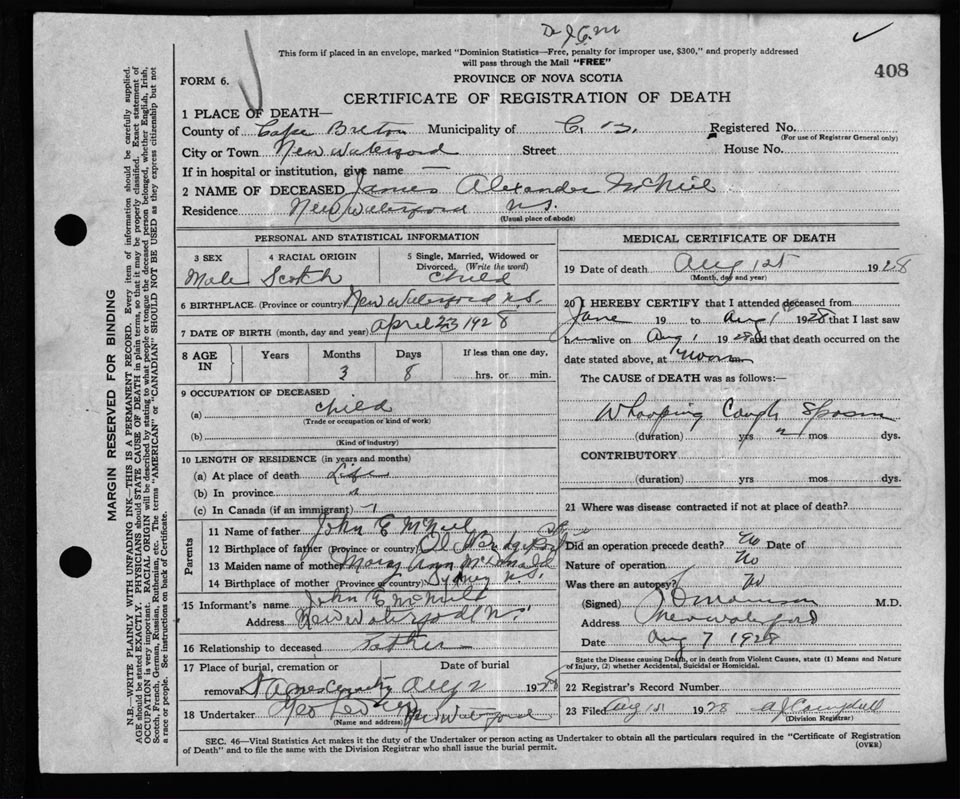 This form if placed in an envelope, marked "Dominion Statistics—Free, penalty for improper use, $300," and properly addressed
will pass through the Mail "FREE"
408
FORM 6.
PROVINCE OF NOVA SCOTIA
CERTIFICATE OF REGISTRATION OF DEATH
1 PLACE OF DEATH—
County of Cape Breton Municipality of C. B. Registered No.
(For use of Registrar General only)
City or Town New Waterford Street House No.
If in hospital or institution, give name —
2 NAME OF DECEASED James Alexander McNeil
Residence New Waterford N.S.
(Usual place of abode)
PERSONAL AND STATISTICAL INFORMATION
3 SEX 4 RACIAL ORIGIN 5 Single, Married, Widowed or
Divorced. (Write the word)
Male Scotch child
6 BIRTHPLACE (Province or country) New Waterford N.S.
7 DATE OF BIRTH (month, day and year) April 23 1928
8 AGE IN Years Months Days If less than one day,
3 8 hrs. or min.
9 OCCUPATION OF DECEASED
(a) child
(Trade or occupation or kind of work)
(b)
(Kind of industry)
10 LENGTH OF RESIDENCE (in years and months)
(a) At place of death Life
(b) In province "
(c) In Canada (if an immigrant)
Parents
11 Name of father John E McNeil
12 Birthplace of father (Province or country)
13 Maiden name of mother Mary Ann McDonald
14 Birthplace of mother (Province or country) Sydney N.S.
15 Informant's name John E McNeil
Address New Waterford N.S.
16 Relationship to deceased Father
17 Place of burial, cremation or Date of burial
removal Aug 2 1928
18 Undertaker New Waterford
(Name and address)
MEDICAL CERTIFICATE OF DEATH
19 Date of death Aug 1st 1928
(Month, day and year)
20 I HEREBY CERTIFY that I attended deceased from
June 19 to Aug 1 1928 that I last saw
him alive on Aug 1 1928 and that death occurred on the
date stated above, at Noon
The CAUSE of DEATH was as follows:—
Whooping Cough Spasm
(duration) yrs mos dys.
CONTRIBUTORY
(duration) yrs. mos. dys.
21 Where was disease contracted if not at place of death?
Did an operation precede death? No Date of
Nature of operation No
Was there an autopsy? No
(Signed) M.D.
Address New Waterford
Date Aug 7 1928
State the Disease causing Death, or in death from Violent Causes, state (1) Means and Nature
of Injury, (2) whether Accidental, Suicidal or Homicidal.
22 Registrar's Record Number
23 Filed Aug 1928 A J Campbell
(Division Registrar)
SEC. 46—Vital Statistics Act makes it the duty of the Undertaker or person acting as Undertaker to obtain all the particulars required in the "Certificate of Registration
of Death" and to file the same with the Division Registrar who shall issue the burial permit.
(OVER)
MARGIN RESERVED FOR BINDING
N.B.—WRITE PLAINLY WITH UNFADING INK—THIS IS A PERMANENT RECORD. Every item of information should be carefully supplied.
AGE should be stated EXACTLY. PHYSICIANS should STATE CAUSE OF DEATH in plain terms, so that it may be properly classified. Exact statement of
OCCUPATION is very important. RACIAL ORIGIN will be described by stating to what people or tongue the deceased person belonged, whether English, Irish,
Scotch, French, German, Russian, Ruthenian, etc. The terms "AMERICAN" or "CANADIAN" SHOULD NOT BE USED as they express citizenship but not
a race or people. See instructions on back of Certificate.